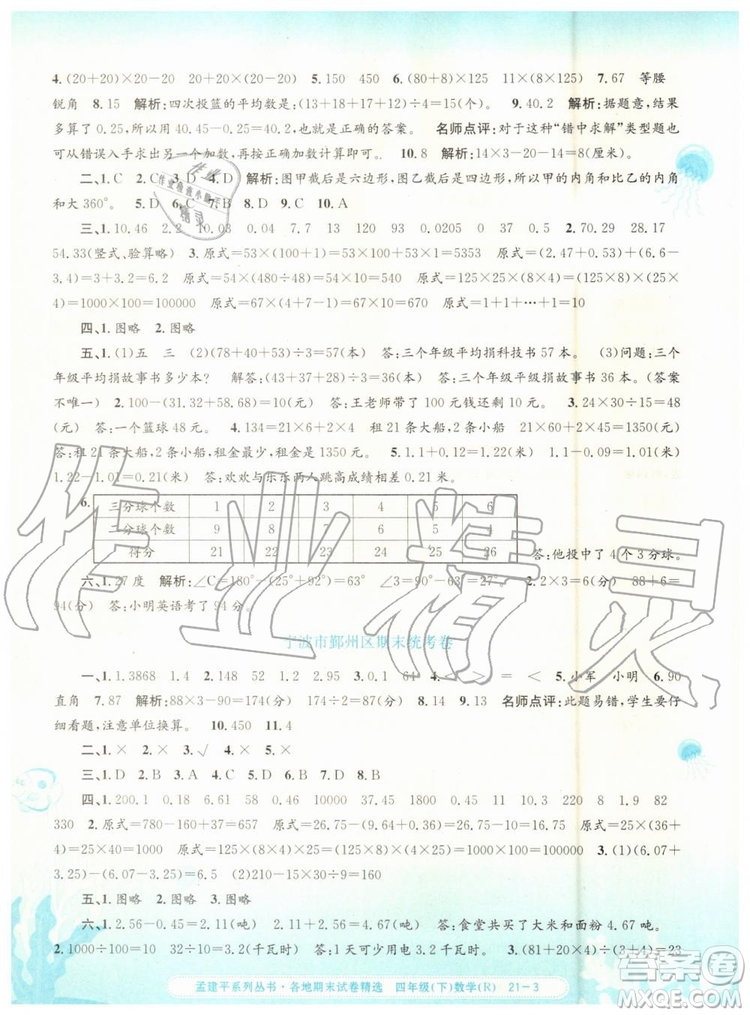 4.(20+20)×20-20　20×20+20　5.150　450　6.(80+8)×125　11×(8×125)　7.67　等腰
锐角　8.15　解析:四次投篮的平均数是:(13+18+17+12)÷4=15(个)。　9.40.2　解析:据题意,结果
多算了0.25,所以用40.45-0.25=40.2就是正确的答案。　名师点评:对于这种“错中求解”类型题也
可以从错误入手求出另一个加数,再按正确计算即可。　10.8　解析:14×3-20-14=8(厘米)。
二、1.C　2.C　3.　4.D　解析:图甲截后是六边形,所以甲的内角和比乙的内角和
大360°。　5.D　6.B　7.D　8.B　9.C　10.A
三、1.10.46　2.2　10.03　4　0.074　10　7　120　93　0.0205　0　2.28.7　30.06　28.17
54.33(竖式、验算略)　3.原式=53×(100+1)=53×100+53×1=5353　原式=(2.47+0.53)+(6.6-
3.6)=3+3=6　原式=54×(480÷48)=54×10=540　原式=(125×8)×(25×4)
=1000×100=100000　原式=67×(4+1-4)=67×1=67　原式=1+1+…+1=10
四、1.图略　2.图略
五、1.(1)五　三　(2)(78+40+53)÷3=57(本)　答:三个年级平均捐科技书57本。　(3)问题:三个
年级平均捐故事书多少本?　解答:(43+37+28)÷3=36(本)　答:三个年级平均捐故事书36本。(答案
不唯一)　2.100-(31.42+58.58)=10(元)　答:王老师带了100元钱还剩10元。　3.(24-15+87)÷2=48
(元)　答:一个篮球48元。　4.134=21×6+2×4　租21条大船,2条小船　21×60+2×45=1350(元)
答:租21条大船,2条小船,租金最少,租金是1350元。　5.1.1+0.12=1.22(米)　1.1-0.09=1.01(米)
1.22-1.01=0.21(米)　答:欢欢与乐乐两人跳高成绩相差0.21米。
6.
三分球个数　1　2　3　4　5　6
二分球个数　9　8　7　6　5　4
得分　21　22　23　24　25　26　答:他投中了4个3分球。
六、1.27度　解析:∠C=180°-(25°+92°)=63°　∠4=90°-63°=27°。　2.2×3=6(分)　88+6=
94(分)　答:小明英语考了94分。
宁波市鄞州区期末统考卷
一、1.1.3868　1.4　2.148　52　1.2　1.95　3.0.61　64　4.<　>　=　=　<　5.小军　小明　6.90
直角　7.87　解析:88×3-90=174(分)　174÷2=87(分)　8.4　9.13　名师点评:此题易错,学生要仔
细看题,注意单位换算。　10.450　11.4
二、1.×　2.×　3.√　4.×
三、1.D　2.B　3.B　4.C　5.D　6.A　7.A　8.D
四、1.200.1　0.18　6.61　58　0.32　24　0.056　4.8　2.3　10　2.22　220　10　8.9　1.9　82
330　2.原式=780-160+37=657　原式=25×(36+4)
=25×40=1000　原式=125×8×9=9000　原式=100×(101-1)=100×100=10000　3.(6.07+
3.6)÷10=0.967　(210-50)÷20=8　210+50-2×50=160　(210-50)×(29-28)=160
五、1.图略　2.图略
六、1.2.56-0.45=2.11(吨)　2.56+2.11=4.67(吨)　答:食堂共买了大米和面粉4.67吨。
2.1000÷100=10　32÷10=3.2(千瓦时)　答:1天可少用电3.2千瓦时。　3.(81+20×2)÷(3+4)=23
孟建平系列丛书·各地期末试卷精选　四年级(下)数学(R)　21-3
作业精灵
答案圈